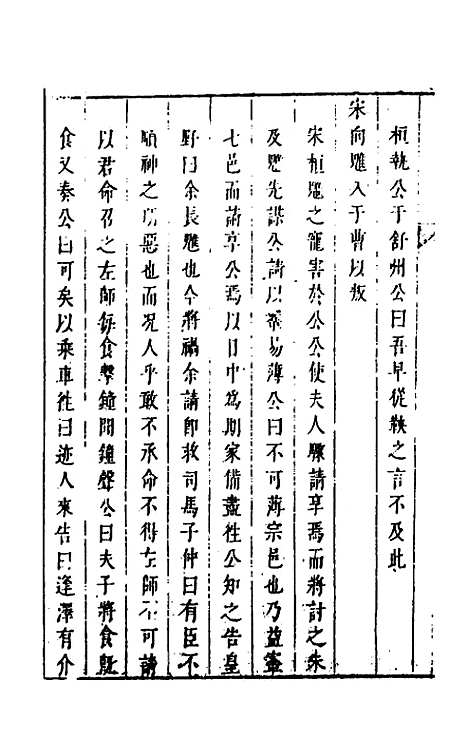 桓執公于舒州公曰吾早從鞅之言不及此
宋向魋入于曹以叛
宋桓魋之寵害於公公使夫人驟請享焉而將討之未
及魋先謀公請以鞌易薄公曰不可薄宗邑也乃益鞌
七邑而請享公焉以日中為期家備盡往公知之告皇
野曰余長魋也今將禍余請即救司馬子仲曰有臣不
順神之所惡也而況人乎敢不承命不得左師不可請
以君命召之左師每食擊鐘聞鐘聲公曰夫子將食既
食又奏公曰可矣以乘車往曰迹人來告曰逢澤有介